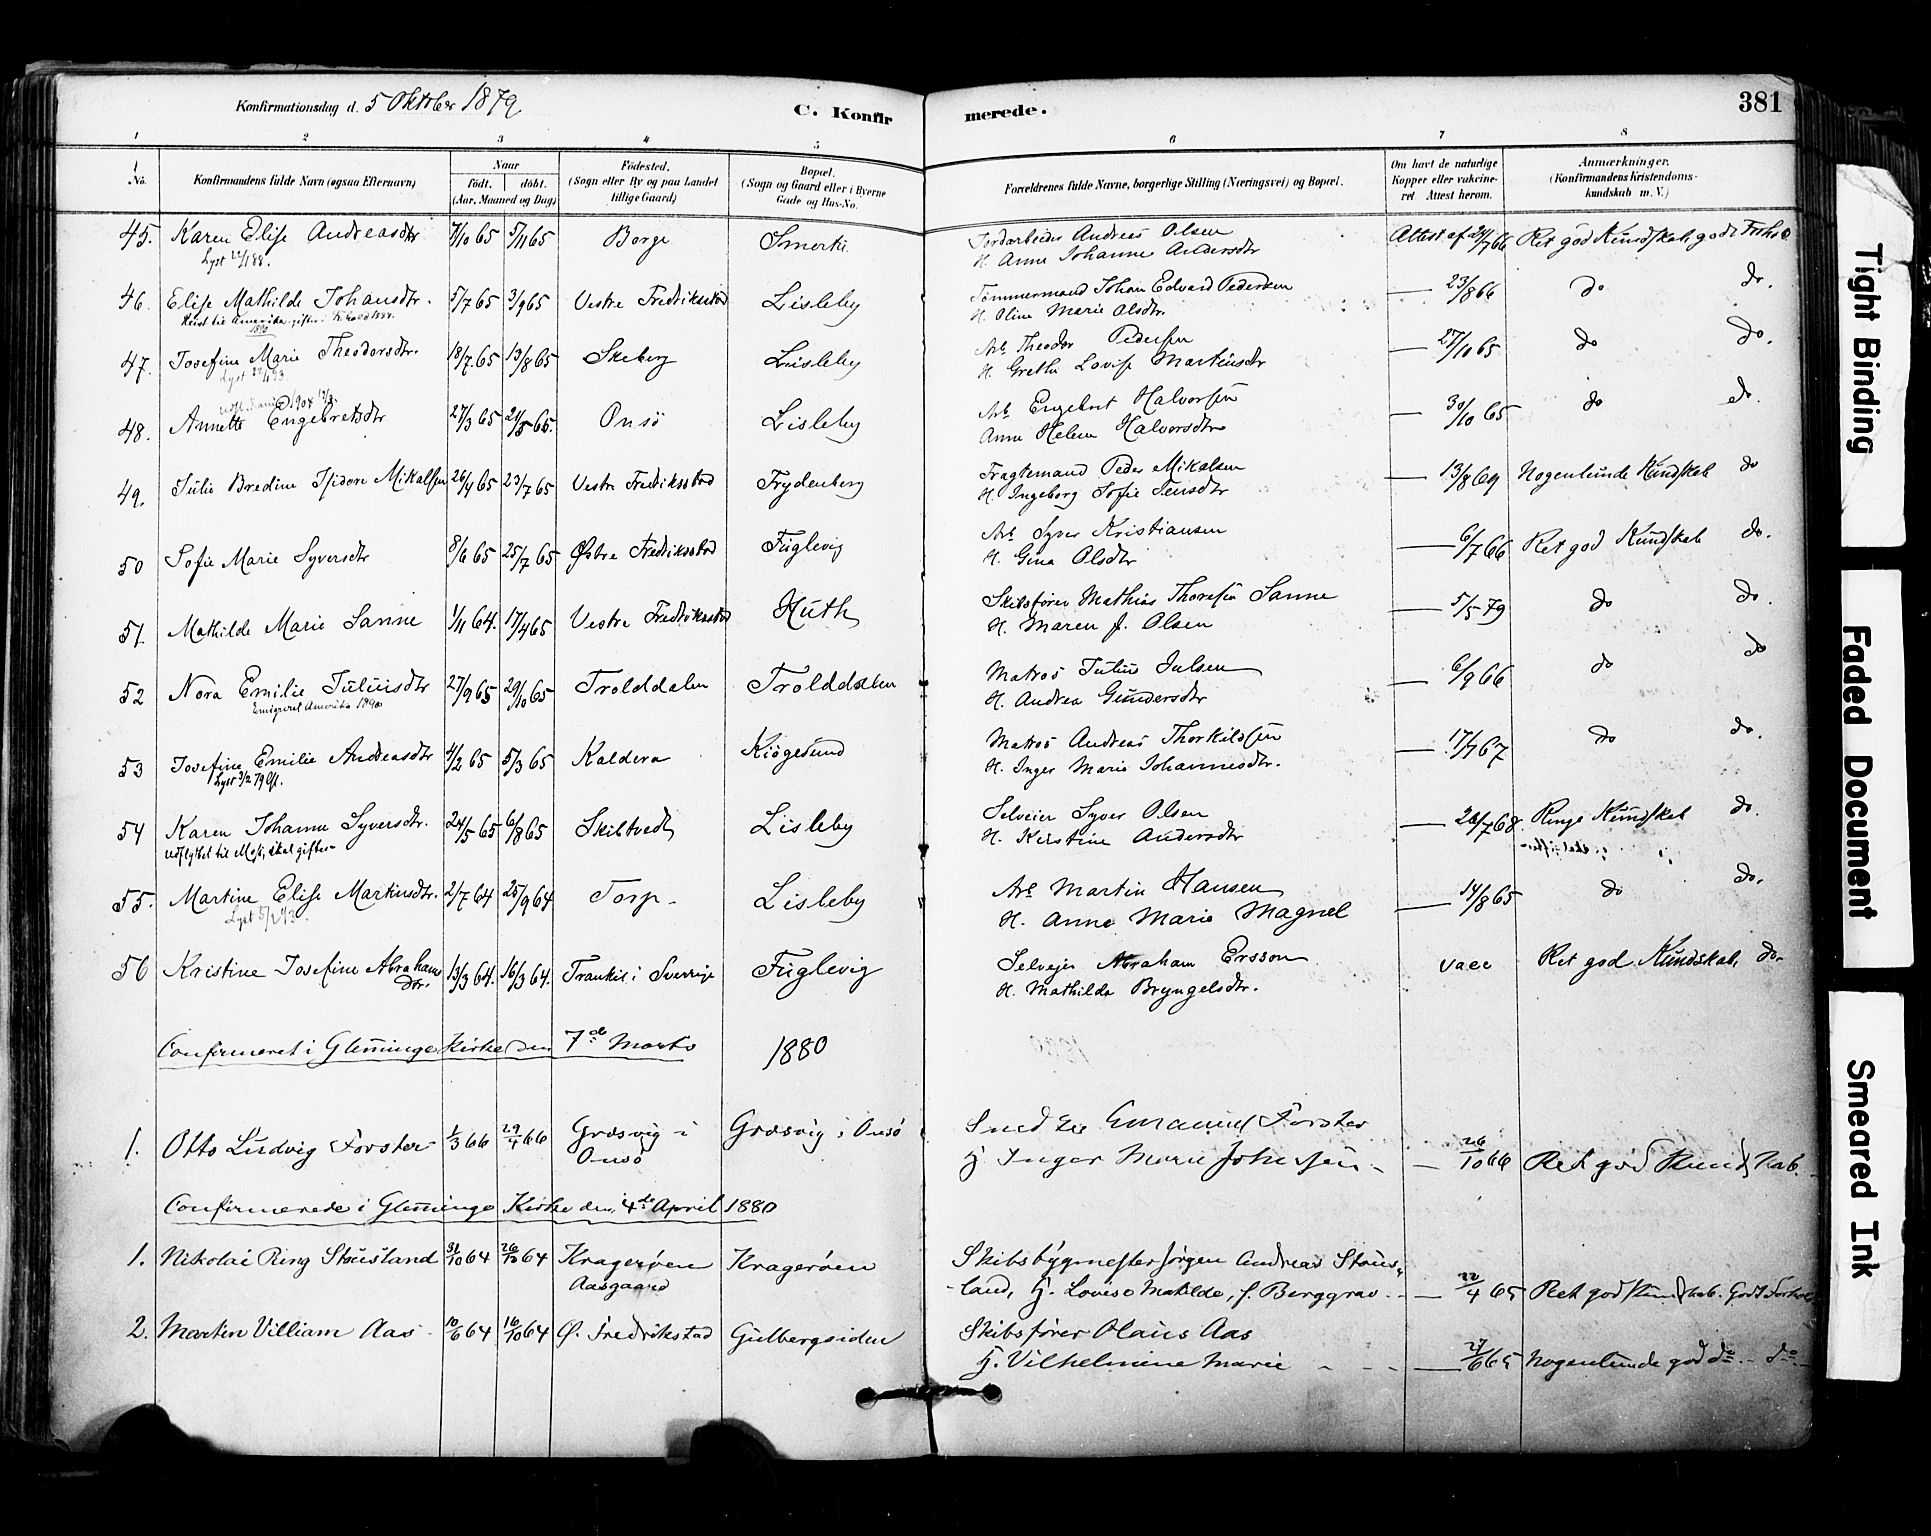 Konfirmationsdag d. 5 Oktober 1879
C. Konfirmerede.
381
1 2 3 4 5 6 7 8
No.
Konfirmandens fulde Navn (ogsaa Efternavn)
Naar
födt. döbt.
(Aar, Maaned og Dag)
Födested.
(Sogn eller By og paa Landet
tillige Gaard)
Bopæl.
(Sogn og Gaard eller i Byerne
Gade og Hus-No.
Forældrenes fulde Navne, borgerlige Stilling (Næringsvei) og Bopæl.
Om havt de naturlige
Kopper eller vakcine-
ret Attest herom.
Anmærkninger.
(Konfirmandens Kristendoms-
kundskab m. V.)
45. Karen Elise Andreasdtr 7/10 65 5/11 65 Borge Smerti Jordarbeider Andreas Olsen Attest af 24/7 66 Ret god Kundskab, godt Forho.
Lyst 22/1 88. H. Anne Johanne Andersdtr
46. Elise Mathilde Johansdtr. 5/7 65 3/9 65 Vestre Fredriksstad Lisleby Tömmermand Johan Edvard Pedersen — 23/8 66 do do.
Reist til Amerika H. Oline Marie Olsdtr.
47. Josefine Marie Theodorsdtr. 18/7. 65 13/8 65 Skeberg Lisleby Arb. Theodor Pedersen — 27/10 65 do do.
H. Grethe Lovise Martinsdtr
48. Annette Engebretsdtr 27/3 65 21/5 65. Onsö Lisleby Arb. Engebret Halvorsen — 30/10 65 do do.
Anne Helene Halvorsdtr
49. Julie Bredine Isidore Mikalsen 26/4 65 23/7 65 Vestre Fredriksstad Frydenberg Fragtemand Peder Mikalsen — 13/8 69 Nogenlunde Kundskab do
H. Ingeborg Sofie Jensdtr
50 Sofie Marie Syversdtr 8/6 65 25/7 65 Østre Fredriksstad Fuglevig Arb. Syver Kristiansen — 6/7 66 Ret god Kundskab do.
H. Gina Olsdtr
51. Mathilde Marie Sanne 1/11 64. 17/4 65 Vestre Fredriksstad Huth Skibsförer Mathias Thoresen Sanne — 5/5 79 do do.
H. Maren f. Olsen
52 Nora Emilie Juliusdtr 27/9 65 29/10 65 Trolddalen Trolddalen Matros Julius Julsen — 6/9 66 do do
Emigreret Amerika 1890 H. Andrea Gundersdtr
53 Josefine Emilie Andreasdtr 4/2 65 5/3 65 Kaldera Kiögesund Matros Andreas Thorkildsen — 17/7 67 do do.
H. Inger Marie Johannesdtr.
54 Karen Johanne Syversdtr. 24/5 65 6/8 65 Skibtvedt Lisleby Selveier Syver Olsen — 28/7 68. Ringe Kundskab do.
udflyttet til Moss, skal giftes H. Kirstine Andersdtr
55. Martine Elise Martinsdtr. 2/7 64 25/9 64 Torp Lisleby Arb. Martin Hansen — 14/8 65 do do.
H. Anne Marie Magnel
56 Kristine Josefine Abrahamsdtr. 13/3 64. 16/3 64. Trankil i Sverrige Fuglevig Selveier Abraham Ersson vacc Ret god Kundskab, do.
H. Mathilda Bryngelsdtr.
Confirmeret i Glemminge Kirke den 7de Marts 1880
1. Otto Ludvig Forster 1/3 66 29/4 66 Græsvig i Græsvig i Onsö Smed Emanuel Forster
Onsö H Inger Marie Johnsen — 26/10 66 Ret god Kundskab.
Confirmerede i Glemminge Kirke den 4de April 1880
1. Nikolai Ring Stousland 31/10 64 26/10 64 Kragerøen Kragerøen Skibsbygmester Jörgen Andreas Stous-
Aasgaard land, H. Lovise Matilde, f. Berggrav — 22/4 65 Ret god Kundskab. Godt Forhold
2. Martin Villiam Aas 10/6 64 16/10 64 Ø. Fredrikstad Gulbergsiden Skibsfører Olaus Aas
H. Vilhelmine Marie — 27/6 65 nogenlunde god do. do.
Tight Binding
Faded Document
Smeared Ink